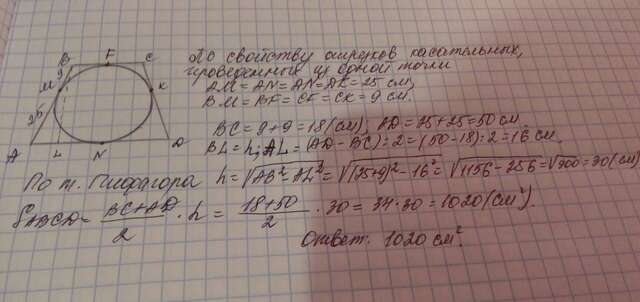 B F C
9
M
K
25
A L N D
По свойству отрезков касательных,
проведенных из одной точки
AM = AN = AN = DK = 25 см,
BM = BF = CF = CK = 9 см.
BC = 9+9 = 18 (см); AD = 25+25 = 50 см.
BL = h; AL = (AD - BC) : 2 = (50-18) : 2 = 16 см.
По т. Пифагора h = √AB² - AL² = √(25+9)² - 16² = √1156 - 256 = √900 = 30 (см)
SABCD = BC+AD/2 · h = 18+50/2 · 30 = 34 · 30 = 1020 (см²).
Ответ: 1020 см².